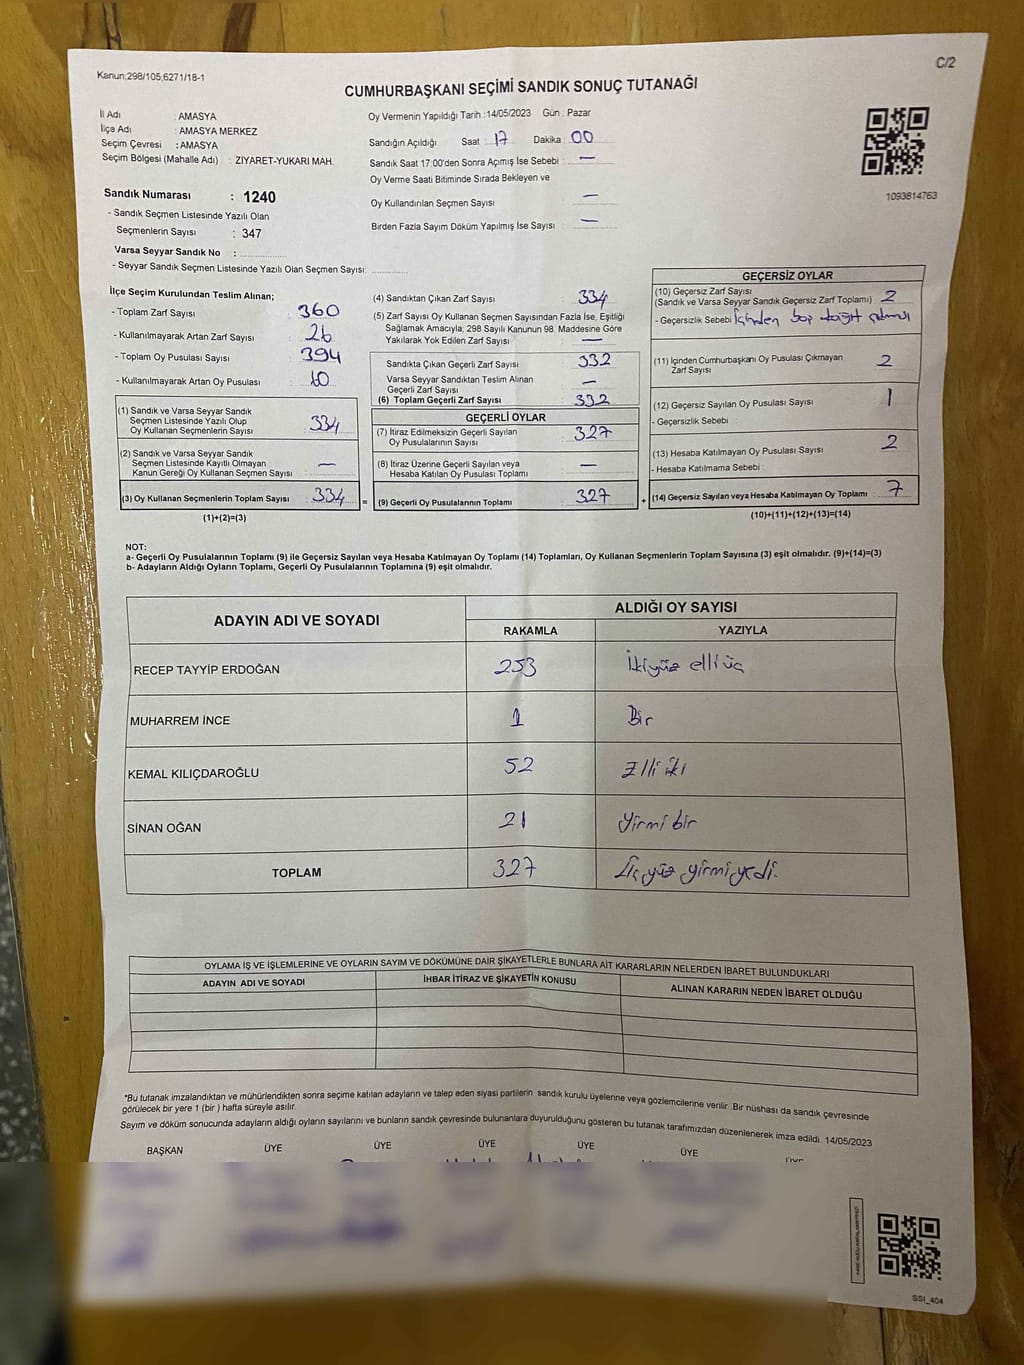 Kanun:298/105,6271/18-1
C/2
CUMHURBAŞKANI SEÇİMİ SANDIK SONUÇ TUTANAĞI
İl Adı : AMASYA
İlçe Adı : AMASYA MERKEZ
Seçim Çevresi : AMASYA
Seçim Bölgesi (Mahalle Adı) : ZİYARET-YUKARI MAH.
Oy Vermenin Yapıldığı Tarih :14/05/2023 Gün : Pazar
Sandığın Açıldığı Saat : 17 Dakika : 00
Sandık Saat 17:00'den Sonra Açımış İse Sebebi : —
Oy Verme Saati Bitiminde Sırada Bekleyen ve
Oy Kullandırılan Seçmen Sayısı : —
Birden Fazla Sayım Döküm Yapılmış İse Sayısı : —
1093814763
Sandık Numarası : 1240
- Sandık Seçmen Listesinde Yazılı Olan
Seçmenlerin Sayısı : 347
Varsa Seyyar Sandık No :
- Seyyar Sandık Seçmen Listesinde Yazılı Olan Seçmen Sayısı:
İlçe Seçim Kurulundan Teslim Alınan;
- Toplam Zarf Sayısı : 360
- Kullanılmayarak Artan Zarf Sayısı : 26
- Toplam Oy Pusulası Sayısı : 394
- Kullanılmayarak Artan Oy Pusulası : 60
(1) Sandık ve Varsa Seyyar Sandık
Seçmen Listesinde Yazılı Olup
Oy Kullanan Seçmenlerin Sayısı : 334
(2) Sandık ve Varsa Seyyar Sandık
Seçmen Listesinde Kayıtlı Olmayan
Kanun Gereği Oy Kullanan Seçmen Sayısı : —
(3) Oy Kullanan Seçmenlerin Toplam Sayısı : 334
(1)+(2)=(3)
=
(4) Sandıktan Çıkan Zarf Sayısı : 334
(5) Zarf Sayısı Oy Kullanan Seçmen Sayısından Fazla İse, Eşitliği
Sağlamak Amacıyla; 298 Sayılı Kanunun 98. Maddesine Göre
Yakılarak Yok Edilen Zarf Sayısı : —
Sandıkta Çıkan Geçerli Zarf Sayısı : 332
Varsa Seyyar Sandıktan Teslim Alınan
Geçerli Zarf Sayısı : —
(6) Toplam Geçerli Zarf Sayısı : 332
GEÇERLİ OYLAR
(7) İtiraz Edilmeksizin Geçerli Sayılan
Oy Pusulalarının Sayısı : 327
(8) İtiraz Üzerine Geçerli Sayılan veya
Hesaba Katılan Oy Pusulası Toplamı : —
(9) Geçerli Oy Pusulalarının Toplamı : 327
+
GEÇERSİZ OYLAR
(10) Geçersiz Zarf Sayısı
(Sandık ve Varsa Seyyar Sandık Geçersiz Zarf Toplamı) : 2
- Geçersizlik Sebebi : İçinden boş
(11) İçinden Cumhurbaşkanı Oy Pusulası Çıkmayan
Zarf Sayısı : 2
(12) Geçersiz Sayılan Oy Pusulası Sayısı : 1
- Geçersizlik Sebebi
(13) Hesaba Katılmayan Oy Pusulası Sayısı : 2
- Hesaba Katılmama Sebebi :
(14) Geçersiz Sayılan veya Hesaba Katılmayan Oy Toplamı : 7
(10)+(11)+(12)+(13)=(14)
NOT:
a- Geçerli Oy Pusulalarının Toplamı (9) ile Geçersiz Sayılan veya Hesaba Katılmayan Oy Toplamı (14) Toplamları, Oy Kullanan Seçmenlerin Toplam Sayısına (3) eşit olmalıdır. (9)+(14)=(3)
b- Adayların Aldığı Oyların Toplamı, Geçerli Oy Pusulalarının Toplamına (9) eşit olmalıdır.
ADAYIN ADI VE SOYADI
ALDIĞI OY SAYISI
RAKAMLA YAZIYLA
RECEP TAYYİP ERDOĞAN 253 İkiyüz elli üç
MUHARREM İNCE 1 Bir
KEMAL KILIÇDAROĞLU 52 Elli iki
SİNAN OĞAN 21 Yirmi bir
TOPLAM 327 Üçyüz yirmi yedi.
OYLAMA İŞ VE İŞLEMLERİNE VE OYLARIN SAYIM VE DÖKÜMÜNE DAİR ŞİKAYETLERLE BUNLARA AİT KARARLARIN NELERDEN İBARET BULUNDUKLARI
ADAYIN ADI VE SOYADI İHBAR İTİRAZ VE ŞİKAYETİN KONUSU ALINAN KARARIN NEDEN İBARET OLDUĞU
*Bu tutanak imzalandıktan ve mühürlendikten sonra seçime katılan adayların ve talep eden siyasi partilerin sandık kurulu üyelerine veya gözlemcilerine verilir. Bir nüshası da sandık çevresinde
görülecek bir yere 1 (bir ) hafta süreyle asılır.
Sayım ve döküm sonucunda adayların aldığı oyların sayılarını ve bunların sandık çevresinde bulunanlara duyurulduğunu gösteren bu tutanak tarafımızdan düzenlenerek imza edildi. 14/05/2023
BAŞKAN ÜYE ÜYE ÜYE ÜYE ÜYE ÜYE
SSI_404